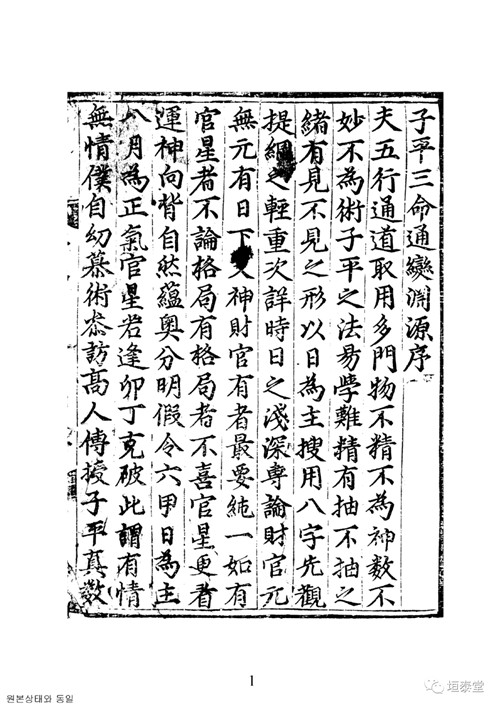 子平三命通變淵源序
夫五行通道取用多門物不精不為神數不
妙不為術子平之法易學難精有抽不抽之
緒有見不見之形以日為主搜用八字先觀
提綱之輕重次詳時日之淺深專論財官元
無元有日下神財官有者最要純一如有
官星者不論格局有格局者不喜官星更看
運神向背自然蘊奧分明假令六甲日為主
八月為正氣官星若逢卯丁克破此謂有情
無情僕自幼慕術叅訪高人傳授子平真數
1
원본상태와 동일
垣泰堂